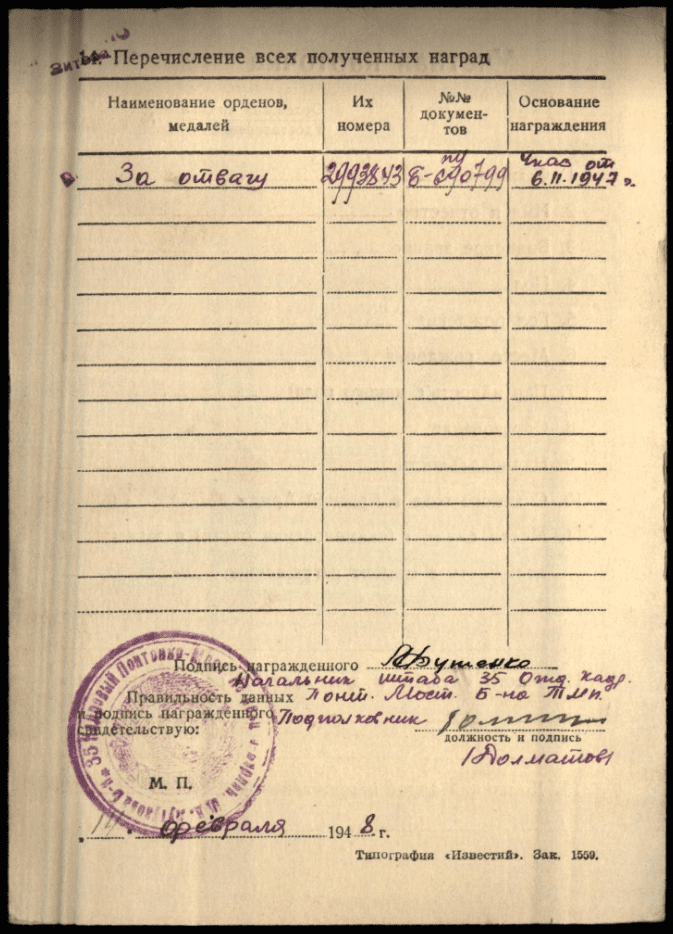 14. Перечисление всех полученных наград
Наименование орденов, медалей
Их номера
№№ докумен-тов
Основание награждения
За отвагу 2993843 Б-690799 Указ от
6.11.1947 г.
Подпись награжденного
Начальник штаба 35 Отд. Кадр.
Правильность данных Понт. Мост. Б-на
и подпись награжденного Подполковник
свидетельствую:
должность и подпись
Долматов
М. П.
14. февраля 1948 г.
Типография «Известий». Зак. 1559.